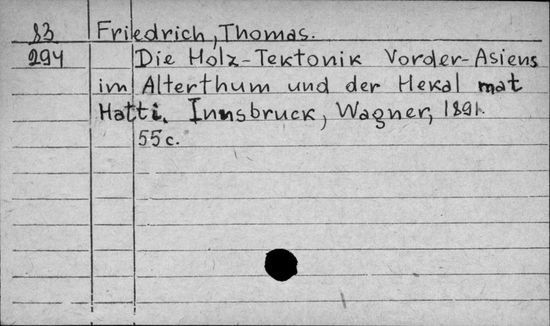 83 Friedrich, Thomas.
294 Die Holz-Tektonik Vorder-Asiens
im Alterthum und der Hekal mat
Hatti. Innsbruck, Wagner, 1891.
55 c.